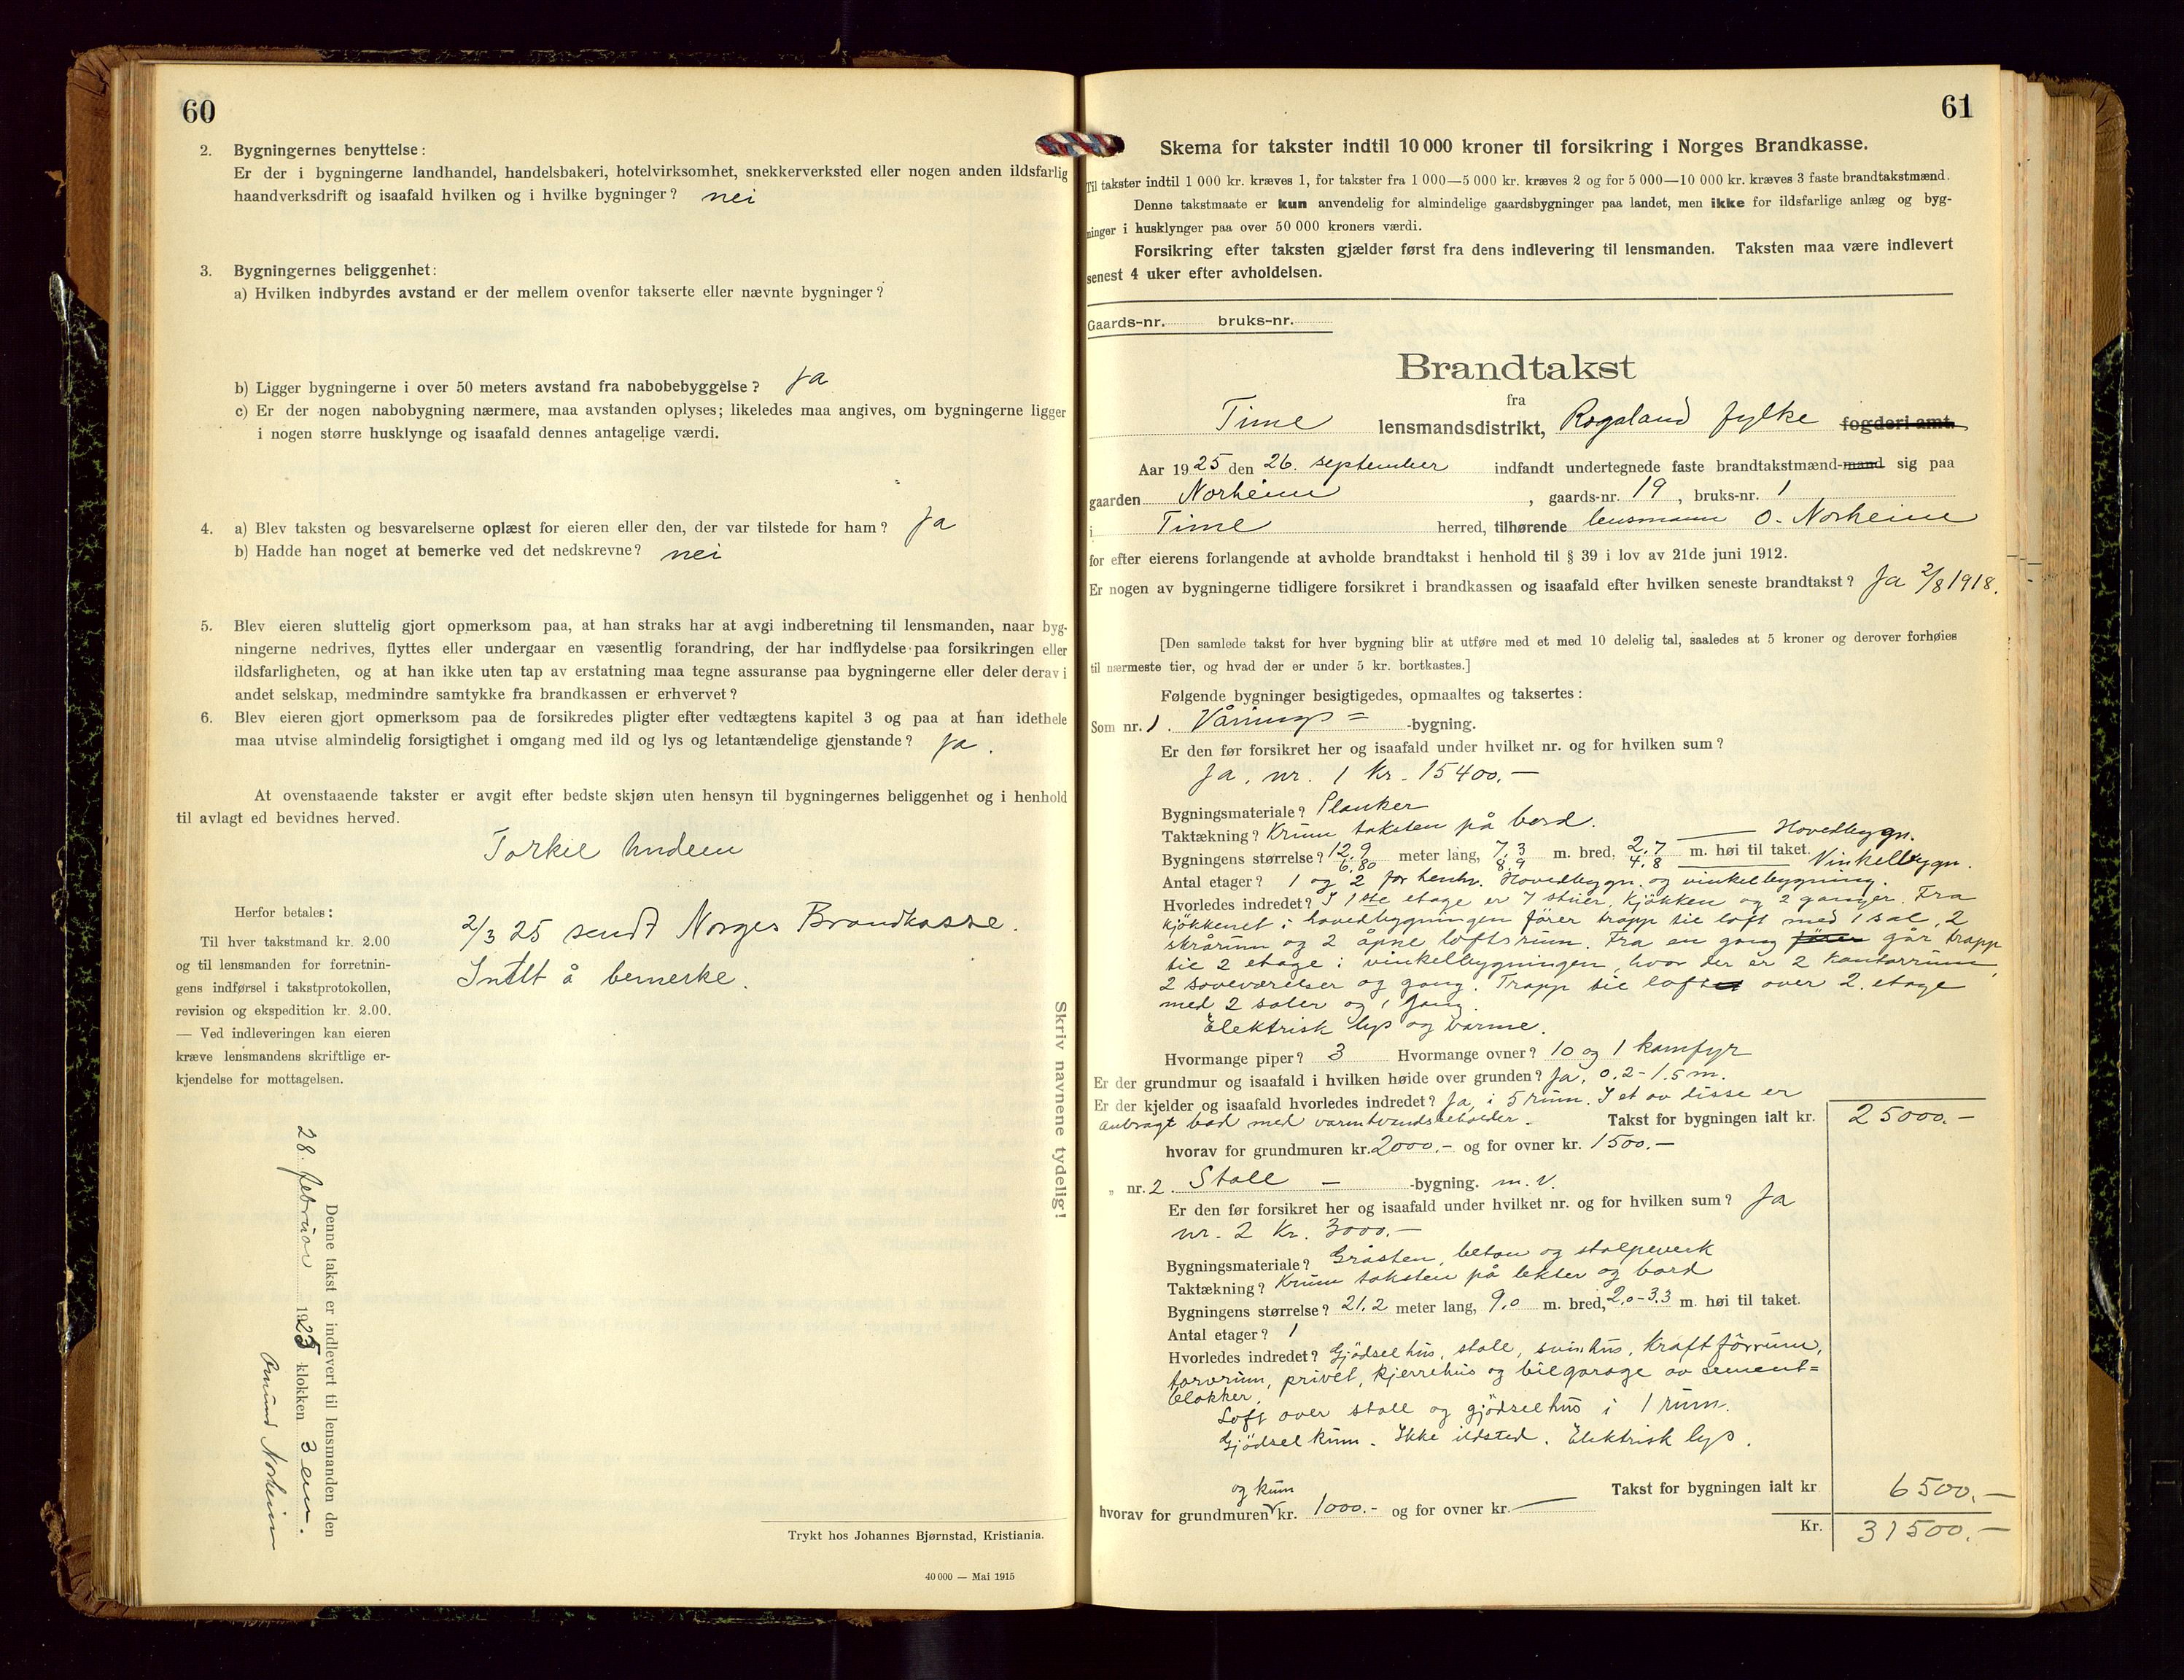 60
2. Bygningernes benyttelse:
Er der i bygningerne landhandel, handelsbakeri, hotelvirksomhet, snekkerverksted eller nogen anden ildsfarlig
haandverksdrift og isaafald hvilken og i hvilke bygninger? nei
3. Bygningernes beliggenhet:
a) Hvilken indbyrdes avstand er der mellem ovenfor takserte eller nævnte bygninger?
b) Ligger bygningerne i over 50 meters avstand fra nabobebyggelse? ja
c) Er der nogen nabobygning nærmere, maa avstanden oplyses; likeledes maa angives, om bygningerne ligger
i nogen større husklynge og isaafald dennes antagelige værdi.
4. a) Blev taksten og besvarelserne oplæst for eieren eller den, der var tilstede for ham? Ja
b) Hadde han noget at bemerke ved det nedskrevne? nei
5. Blev eieren sluttelig gjort opmerksom paa, at han straks har at avgi indberetning til lensmanden, naar byg-
ningerne nedrives, flyttes eller undergaar en væsentlig forandring, der har indflydelse paa forsikringen eller
ildsfarligheten, og at han ikke uten tap av erstatning maa tegne assuranse paa bygningerne eller deler derav i
andet selskap, medmindre samtykke fra brandkassen er erhvervet?
6. Blev eieren gjort opmerksom paa de forsikredes pligter efter vedtægtens kapitel 3 og paa at han idethele
maa utvise almindelig forsigtighet i omgang med ild og lys og letantændelige gjenstande? ja.
At ovenstaaende takster er avgit efter bedste skjøn uten hensyn til bygningernes beliggenhet og i henhold
til avlagt ed bevidnes herved.
Torkel Undem
Herfor betales:
Til hver takstmand kr. 2.00
og til lensmanden for forretnin-
gens indførsel i takstprotokollen,
revision og ekspedition kr. 2.00.
— Ved indleveringen kan eieren
kræve lensmandens skriftlige er-
kjendelse for mottagelsen.
2/3 25 sendt Norges Brandkasse.
Intet å bemerke.
Skriv navnene tydelig!
Denne takst er indlevert til lensmanden den
28. februar 1925 klokken 3 em.
Omund Norheim
Trykt hos Johannes Bjørnstad, Kristiania.
40 000 — Mai 1915
61
Skema for takster indtil 10 000 kroner til forsikring i Norges Brandkasse.
Til takster indtil 1 000 kr. kræves 1, for takster fra 1 000—5 000 kr. kræves 2 og for 5 000—10 000 kr. kræves 3 faste brandtakstmænd.
Denne takstmaate er kun anvendelig for almindelige gaardsbygninger paa landet, men ikke for ildsfarlige anlæg og byg-
ninger i husklynger paa over 50 000 kroners værdi.
Forsikring efter taksten gjælder først fra dens indlevering til lensmanden. Taksten maa være indlevert
senest 4 uker efter avholdelsen.
Gaards-nr. bruks-nr.
Brandtakst
fra
Time lensmandsdistrikt, Rogaland fylke fogderi amt.
Aar 1925 den 26. september indfandt undertegnede faste brandtakstmænd-mand sig paa
gaarden Norheim, gaards-nr. 19, bruks-nr. 1
i Time herred, tilhørende lensmann O. Norheim
for efter eierens forlangende at avholde brandtakst i henhold til § 39 i lov av 21de juni 1912.
Er nogen av bygningerne tidligere forsikret i brandkassen og isaafald efter hvilken seneste brandtakst? Ja 2/8 1918.
[Den samlede takst for hver bygning blir at utføre med et med 10 delelig tal, saaledes at 5 kroner og derover forhøies
til nærmeste tier, og hvad der er under 5 kr. bortkastes.]
Følgende bygninger besigtigedes, opmaaltes og taksertes:
Som nr. 1. Vånings= -bygning.
Er den før forsikret her og isaafald under hvilket nr. og for hvilken sum?
Ja, nr. 1 kr. 15400.-
Bygningsmateriale? Planker
Taktækning? Krum taksten på bord.
Bygningens størrelse? 12.9 meter lang, 7.3 m. bred, 2.7 m. høi til taket. — Hovedbygn.
6.80 8.9 4.8 — Vinkelbygn.
Antal etager? 1 og 2 for henhv. Hovedbygn. og vinkelbygning.
Hvorledes indredet? I 1ste etage er 7 stuer, kjøkken og 2 ganger. Fra
kjøkkenet i hovedbygningen fører trapp til loft med 1 sal, 2
skrårum og 2 åpne loftsrum. Fra en gang fører går trapp
til 2 etage i vinkelbygningen, hvor der er 2 kontorrum,
2 soveværelser og gang. Trapp til loftet over 2. etage
med 2 saler og 1 gang.
Elektrisk lys og varme.
Hvormange piper? 3 Hvormange ovner? 10 og 1 komfyr
Er der grundmur og isaafald i hvilken høide over grunden? Ja, 0.2-1.5 m.
Er der kjelder og isaafald hvorledes indredet? Ja, i 5 rum. I et av disse er
anbragt bad med varmtvandsbeholder. Takst for bygningen ialt kr. 25000.-
hvorav for grundmuren kr. 2000.- og for ovner kr. 1500.-
„ nr. 2. Stall - -bygning. m. v.
Er den før forsikret her og isaafald under hvilket nr. og for hvilken sum? Ja
nr. 2 kr. 3000.-
Bygningsmateriale? Gråsten, beton og stolpeverk
Taktækning? Krum taksten på lekter og bord
Bygningens størrelse? 21.2 meter lang, 9.0 m. bred, 2.0-3.3 m. høi til taket.
Antal etager? 1
Hvorledes indredet? Gjødselhus, stall, svinhus, kraftfôrrum,
torvrum, privet, kjerrehus og bilgarage av sement=
blokker.
Loft over stall og gjødselhus i 1 rum.
Gjødselkum. Ikke ildsted. Elektrisk lys.
Takst for bygningen ialt kr 6500.-
og kum
hvorav for grundmuren kr. 1000.- og for ovner kr. —
Kr. 31500.-